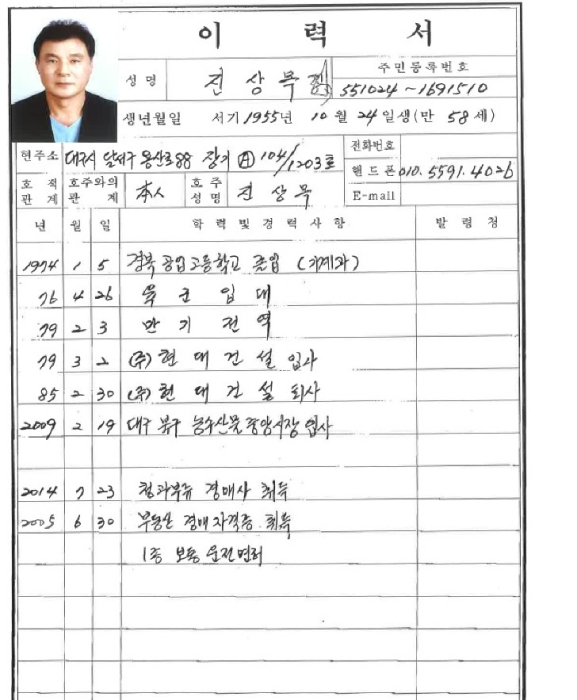 이 력 서
성 명 전 상 목
주민등록번호
551024 ~ 1691510
생년월일 서기 1955년 10 월 24 일생 (만 58 세)
현주소 대구시 달서구 용산로 88 장기 Ⓐ 104/1203호
전화번호
핸드폰 010. 5591. 4026
호 적 관 계 호주와의 관 계 本人 호 주 성 명 전 상 목
E-mail
년 월 일 학 력 및 경 력 사 항 발 령 청
1974 1 5 경북 공업고등학교 졸업 (기계과)
76 4 26 육 군 입 대
79 2 3 만 기 전 역
79 3 2 (주) 현 대 건 설 입사
85 2 30 (주) 현 대 건 설 퇴사
2009 2 19 대구 북구 농수산물 중앙시장 입사
2014 7 23 청과부류 경매사 취득
2005 6 30 부동산 경매 자격증 취득
1종 보통 운전면허